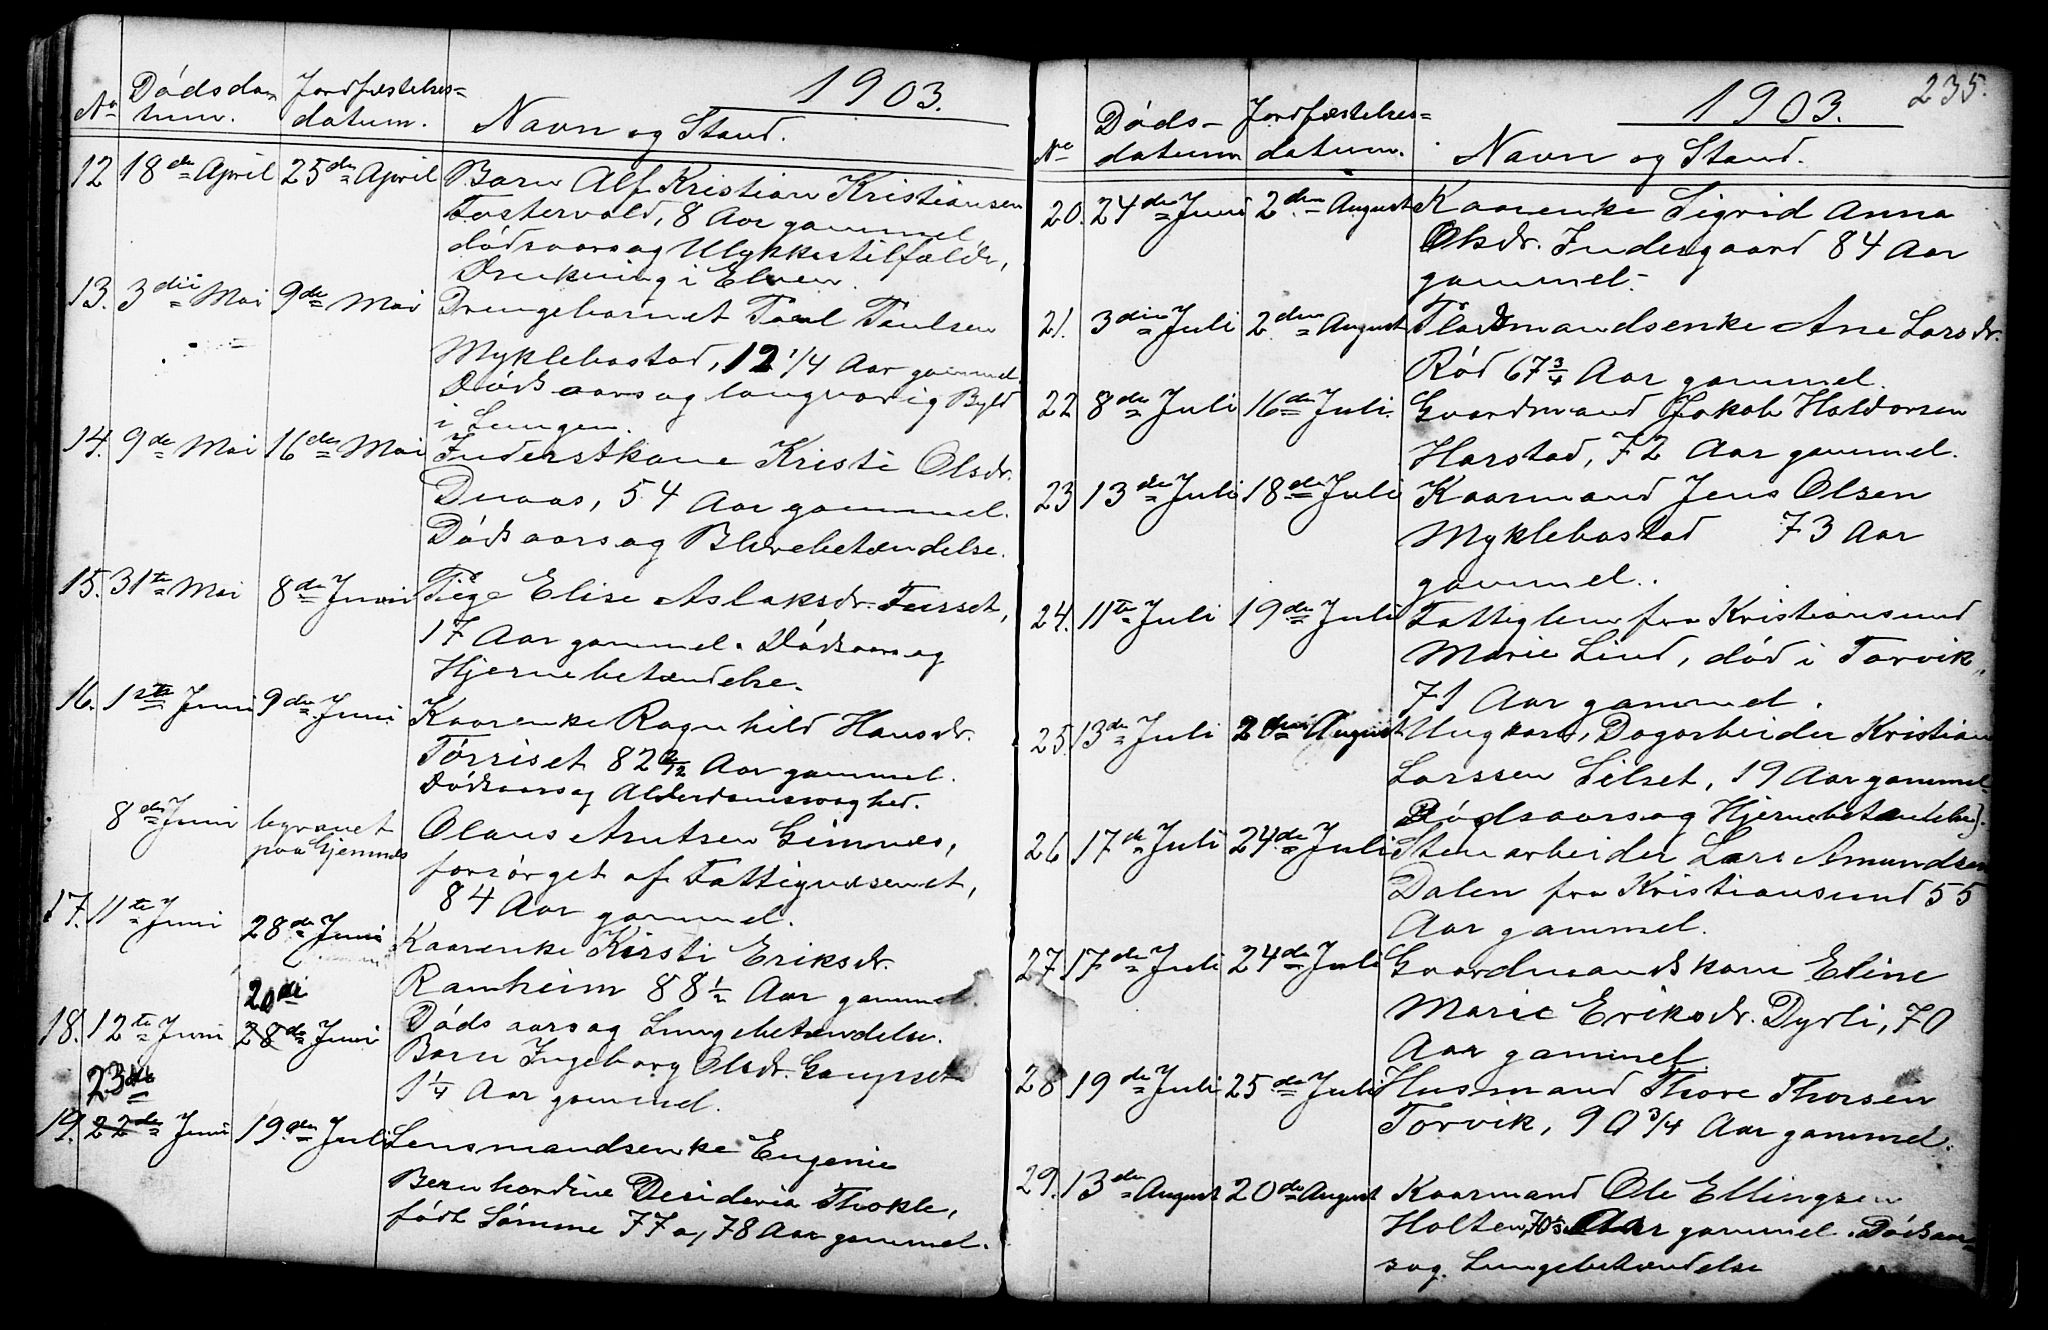 1903.
No Dødsda= Jordfæstelses=
tum. datum. Navn og Stand.
12 18de April 25de April Barn Alf Kristian Kristiansen
Fostervold, 8 Aar gammel
dødsaarsag Ulykkestilfælde,
Drukning i Elven.
13. 3die Mai 9de Mai Drengebarnet Paul Paulsen
Myklebostad, 12 1/4 Aar gammel.
Dødsaarsag langvarig Byld
i Lungen.
14. 9de Mai 16de Mai Inderstkone Kristi Olsdr.
54 Aar gammel.
Dødsaarsag Blærebetændelse.
15. 31te Mai 8de Juni Pige Elise Aslaksdr. Furset,
17 Aar gammel. Dødsaarsag
Hjernebetændelse.
16. 1ste Juni 9de Juni Kaarenke Ragnhild Hansdr.
Tørriset 82 2/12 Aar gammel.
Dødsaarsag Alderdomssvaghed.
8de Juni begravet Olaus Arntsen Gimnes,
paa Gjemnes
forsørget af Fattigvæsenet,
84 Aar gammel.
17. 11te Juni 28de Juni Kaarenke Kirsti Eriksdr.
Ranheim 88 1/2 Aar gammel.
20de
Dødsaarsag Lungebetændelse.
18. 12te Juni 28de Juni Barn Ingeborg Olsdr. Gaupset
1 1/4 Aar gammel.
23de
19. 22de Juni 19de Juli Lensmandsenke Eugenie
Bernhardine Desideria Thokle,
født Sømme 77 a 78 Aar gammel.
235.
1903.
Døds- Jordfæstelses=
No datum datum. Navn og Stand.
20. 24de Juni 2den August Kaarenke Sigrid Anna
Olsdr. Indergaard 84 Aar
gammel.
21. 3die Juli 2den August Pladsmandsenke Ane Larsdr.
Rød 67 3/4 Aar gammel.
22 8de Juli 16de Juli. Gaardmand Jakob Haldorsen
Harstad, 72 Aar gammel.
23 13de Juli 18de Juli Kaarmand Jens Olsen
Myklebostad 73 Aar
gammel.
24. 11te Juli 19de Juli Fattiglem fra Kristiansund
Marie Lind, død i Torvik,
71 Aar gammel.
25 13de Juli 2den August Ungkarl, Dagarbeider Kristian
Larssen Silset, 19 Aar gammel.
Dødsaarsag Hjernebetændelse).
26 17de Juli 24de Juli Stenarbeider Lars Amundsen
Dalen fra Kristiansund 55
Aar gammel.
27 17de Juli 24de Juli Gaardmandskone Eline
Marie Eriksdr. Dyrli, 70
Aar gammel
28 19de Juli 25de Juli Husmand Thore Thorsen
Torvik, 90 3/4 Aar gammel.
29. 13de August 20de August Kaarmand Ole Ellingsen
Holten, 70 1/3 Aar gammel. Dødsaar=
sag. Lungebetændelse